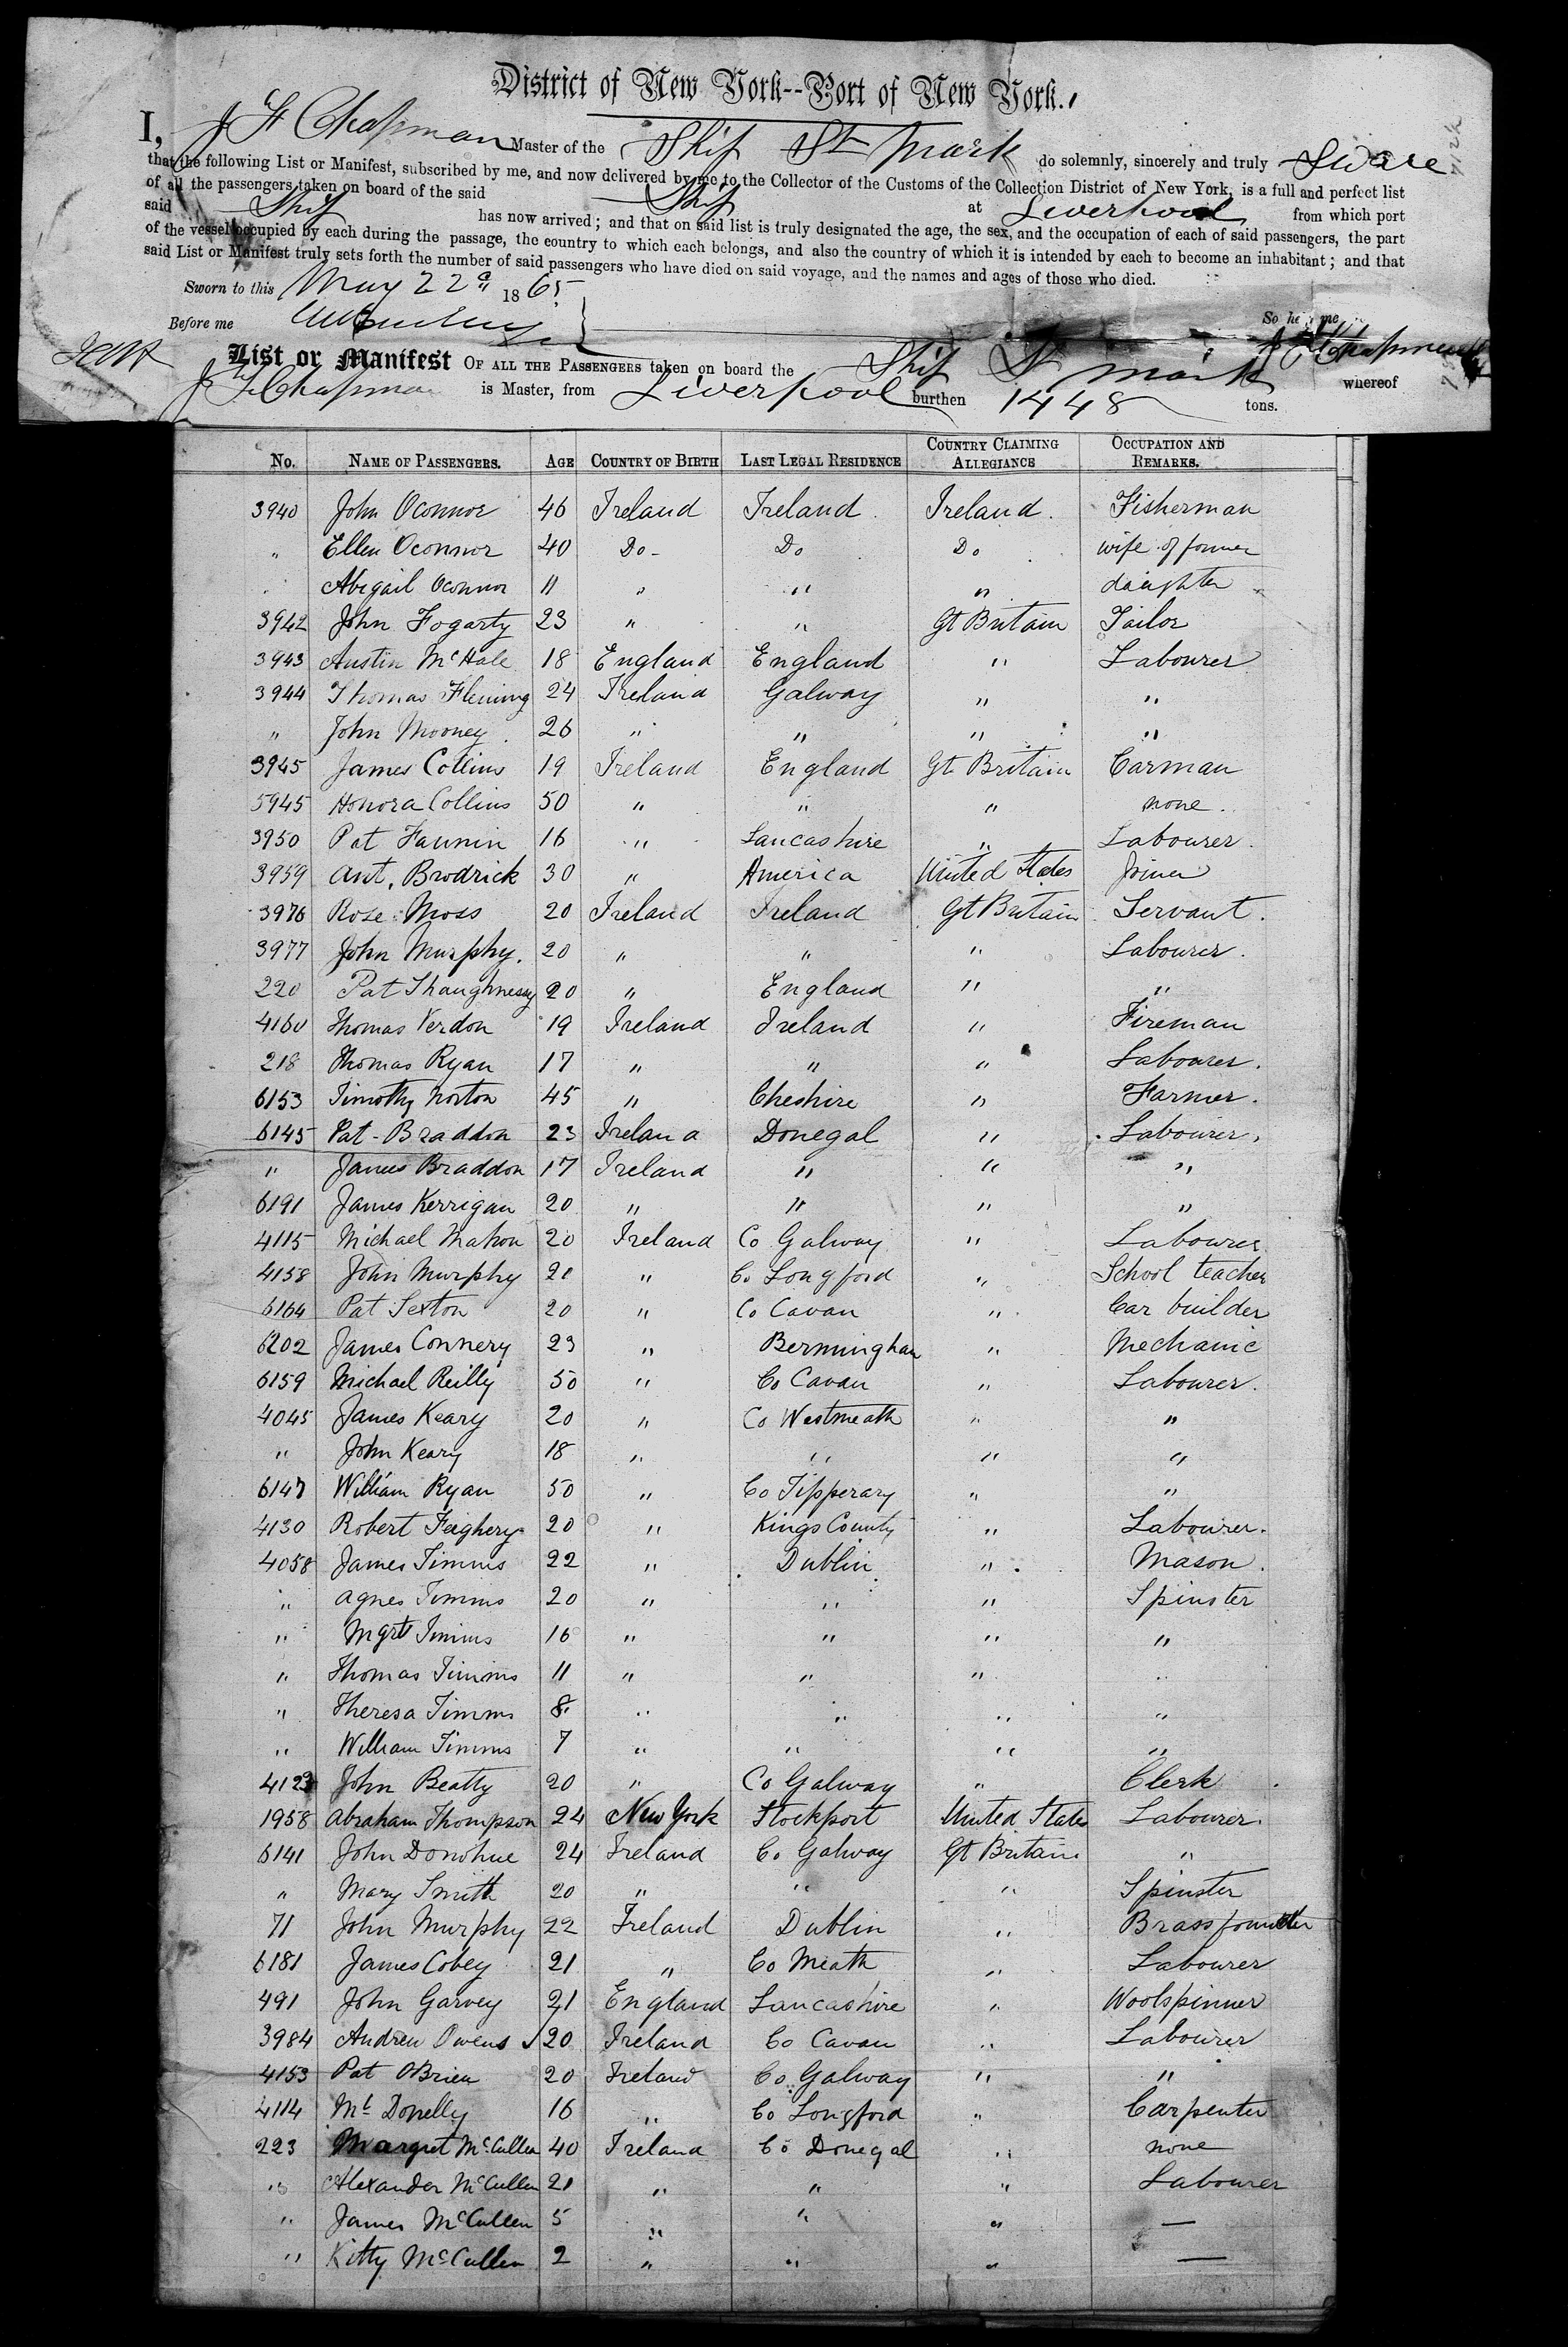 District of New York--Port of New York.
I, J F Chapman Master of the Ship St Mark do solemnly, sincerely and truly Sware
that the following List or Manifest, subscribed by me, and now delivered by me to the Collector of the Customs of the Collection District of New York, is a full and perfect list
of all the passengers taken on board of the said Ship at Liverpool from which port
said Ship has now arrived; and that on said list is truly designated the age, the sex, and the occupation of each of said passengers, the part
of the vessel occupied by each during the passage, the country to which each belongs, and also the country of which it is intended by each to become an inhabitant; and that
said List or Manifest truly sets forth the number of said passengers who have died on said voyage, and the names and ages of those who died.
Sworn to this May 22d 1865 So help me
Before me J F Chapman
List or Manifest OF ALL THE PASSENGERS taken on board the Ship St Mark whereof
J F Chapman is Master, from Liverpool burthen 1448 tons.
No. NAME OF PASSENGERS. AGE COUNTRY OF BIRTH LAST LEGAL RESIDENCE COUNTRY CLAIMING ALLEGIANCE OCCUPATION AND REMARKS.
3940 John Oconnor 46 Ireland Ireland Ireland Fisherman
" Ellen Oconnor 40 Do Do Do wife of former
Abigail Oconnor 11 " " " daughter
3942 John Fogarty 23 " " Gt Britain Tailor
3943 Austin McHale 18 England England " Labourer
3944 Thomas Fleming 24 Ireland Galway " "
" John Mooney 26 " " " "
3945 James Collins 19 Ireland England Gt Britain Carman
5945 Honora Collins 50 " " " none
3950 Pat Faunin 16 " Lancashire " Labourer
3959 Ant. Brodrick 30 " America United States Joiner
3976 Rose Moss 20 Ireland Ireland Gt Britain Servant
3977 John Murphy 20 " " " Labourer
220 Pat Shaughnessy 20 " England " "
4160 Thomas Verdon 19 Ireland Ireland " Fireman
218 Thomas Ryan 17 " " " Labourer
6153 Timothy Norton 45 " Cheshire " Farmer
6145 Pat Braddon 23 Ireland Donegal " Labourer
" James Braddon 17 Ireland " " "
6191 James Kerrigan 20 " " " "
4115 Michael Mahon 20 Ireland Co Galway " Labourer
4158 John Murphy 21 " Co Longford " School teacher
6164 Pat Sexton 20 " Co Cavan " Car builder
6202 James Connery 23 " Bermingham " Mechanic
6159 Michael Reilly 50 " Co Cavan " Labourer
4045 James Keary 20 " Co Westmeath " "
" John Keary 18 " " " "
6147 William Ryan 50 " Co Tipperary " "
4130 Robert Feighery 20 " Kings County " Labourer
4058 James Timms 22 " Dublin " Mason
" Agnes Timms 20 " " " Spinster
" Mgrt Timms 16 " " " "
" Thomas Timms 11 " " " "
" Theresa Timms 8 " " " "
" William Timms 7 " " " "
4123 John Beatty 20 " Co Galway " Clerk
1958 Abraham Thompson 24 New York Stockport United States Labourer
6141 John Donohue 24 Ireland Co Galway Gt Britain "
" Mary Smith 20 " " " Spinster
71 John Murphy 22 Ireland Dublin " Brassfounder
6181 James Cobey 21 " Co Meath " Labourer
491 John Garvey 21 England Lancashire " Woolspinner
3984 Andrew Owens 20 Ireland Co Cavan " Labourer
4153 Pat OBrien 20 Ireland Co Galway " "
4114 Ml Donelly 16 " Co Longford " Carpenter
223 Margret McCullen 40 Ireland Co Donegal " none
" Alexander McCullen 21 " " " Labourer
" James McCullen 5 " " " —
" Kitty McCullen 2 " " " —